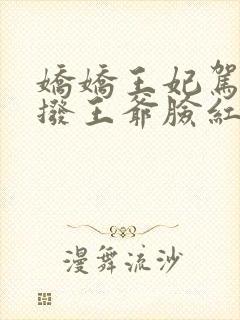 嬌嬌王妃駕
撥王爺臉紅
漫舞流沙